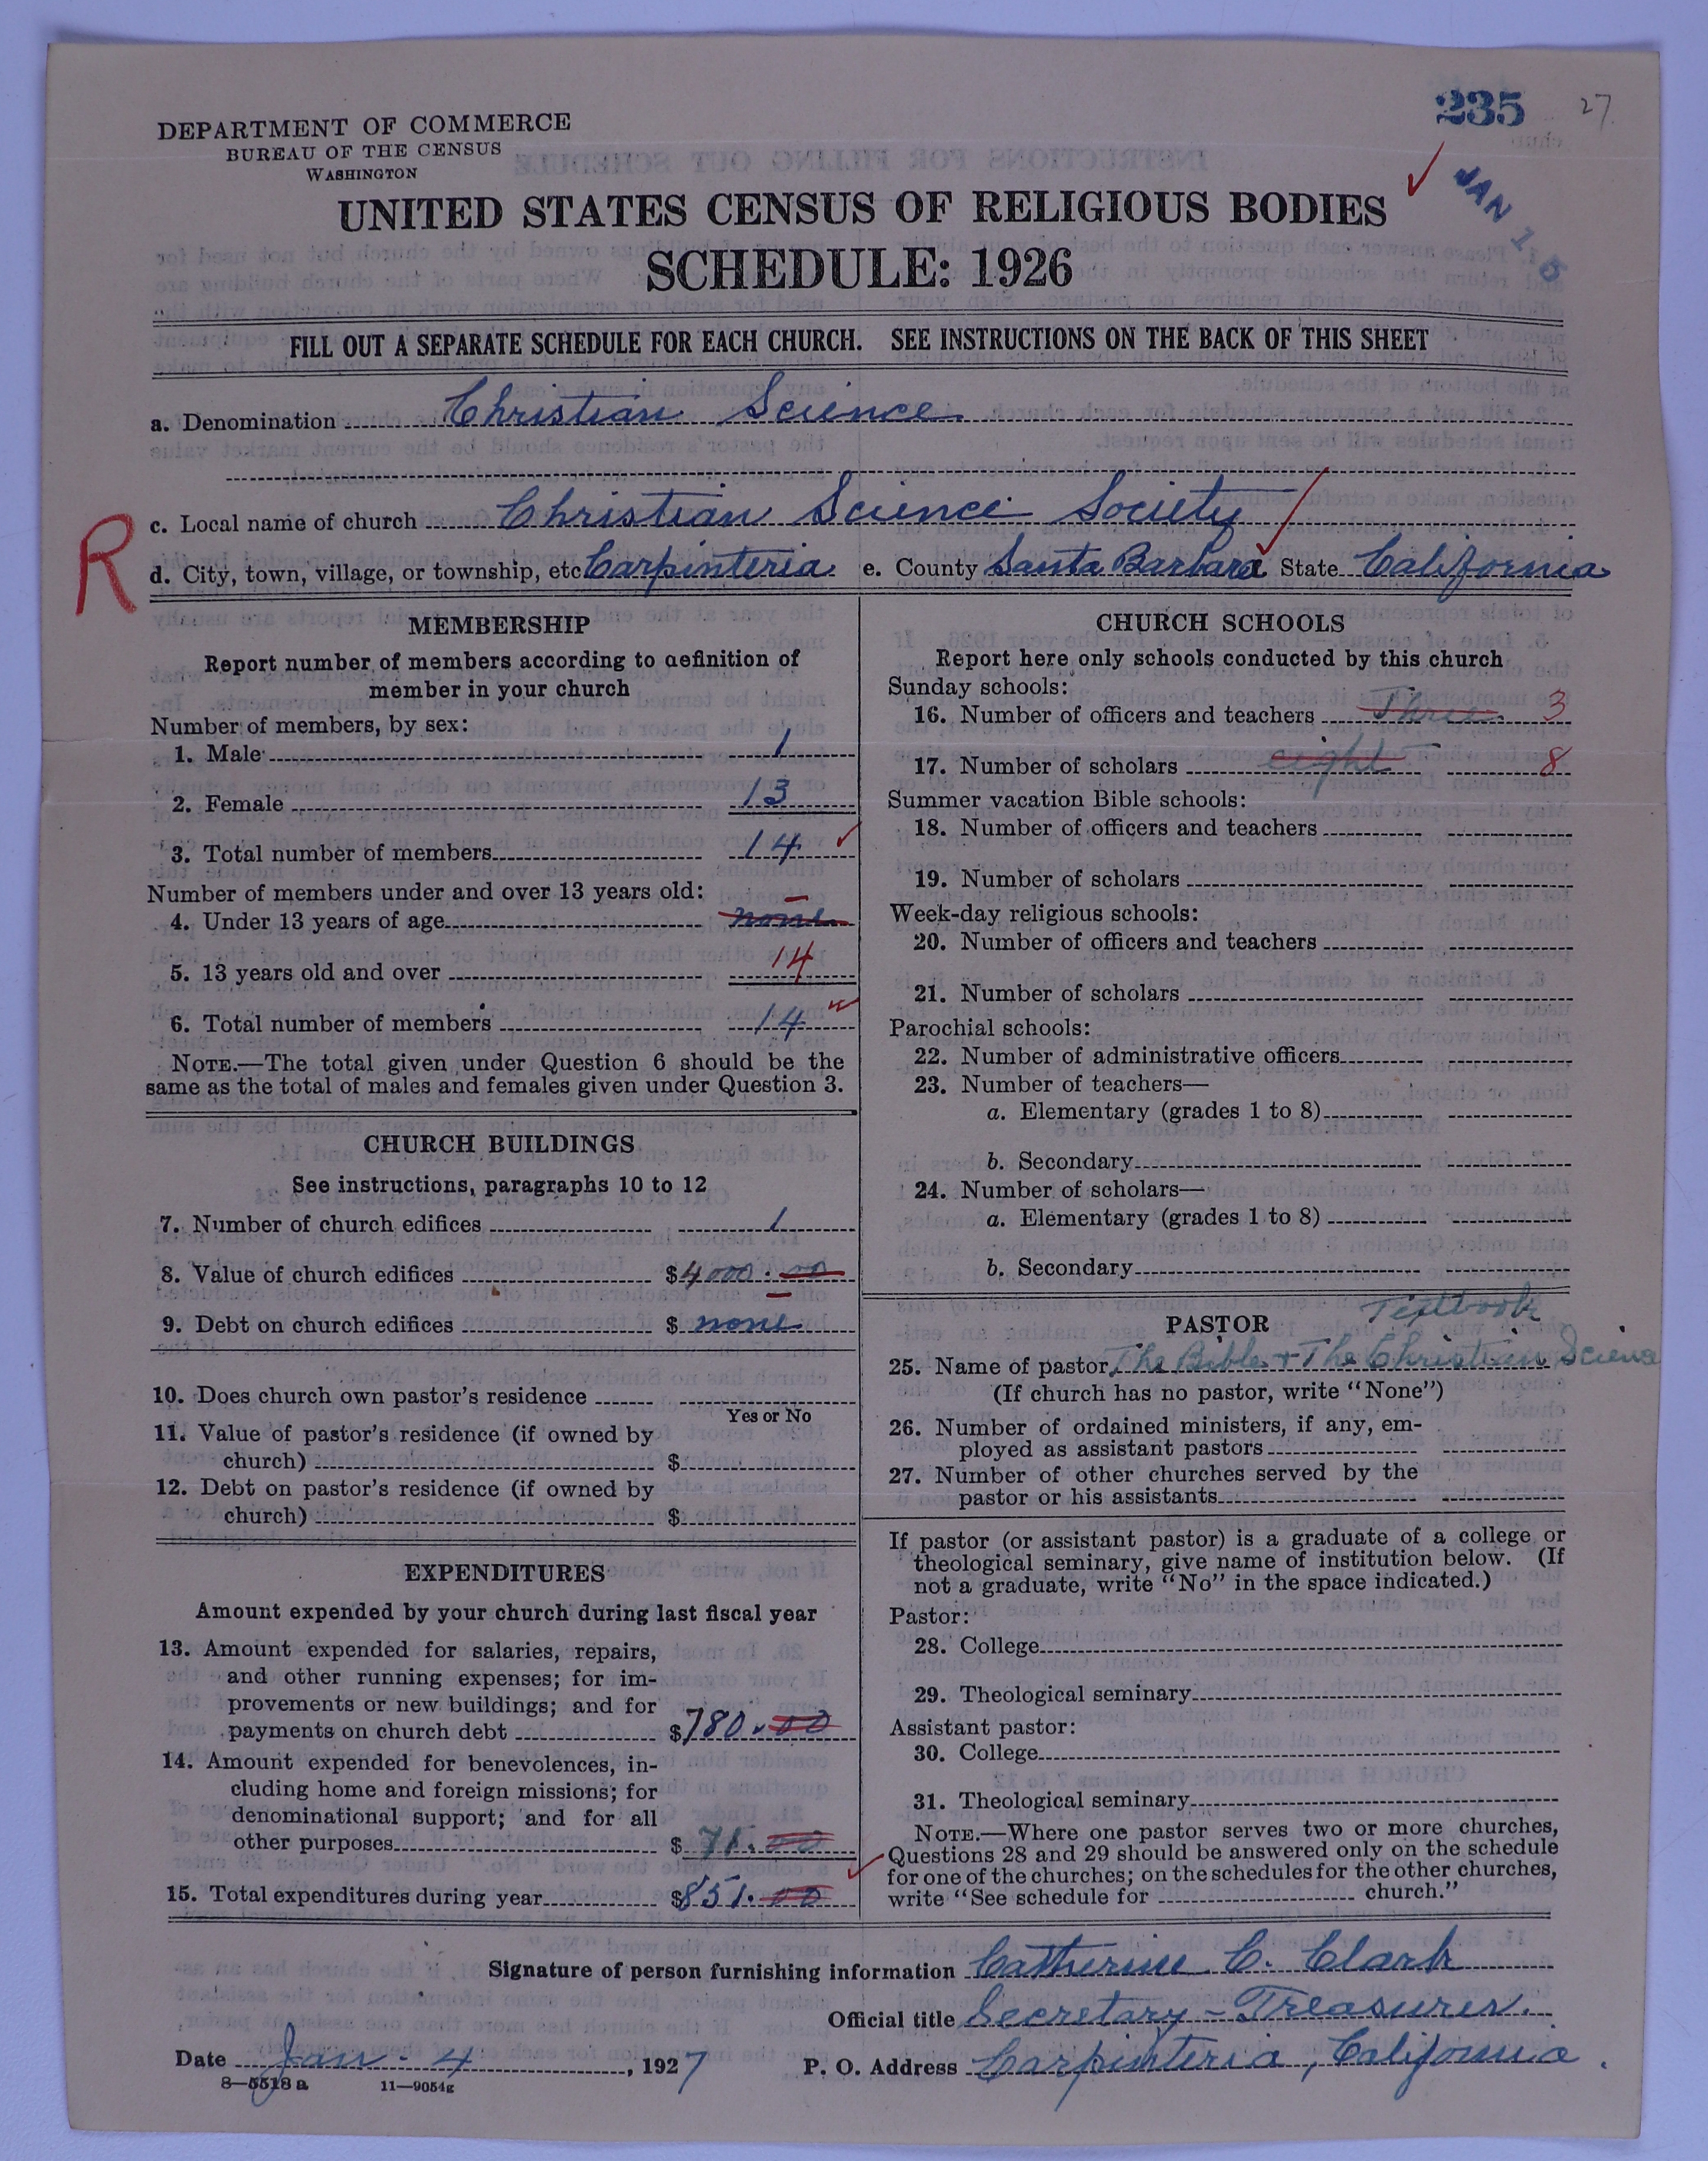 235 27
DEPARTMENT OF COMMERCE
BUREAU OF THE CENSUS
WASHINGTON
JAN 15
UNITED STATES CENSUS OF RELIGIOUS BODIES
SCHEDULE: 1926
FILL OUT A SEPARATE SCHEDULE FOR EACH CHURCH. SEE INSTRUCTIONS ON THE BACK OF THIS SHEET
a. Denomination Christian Science
R
c. Local name of church Christian Science Society
d. City, town, village, or township, etc Carpinteria e. County Santa Barbara State California
MEMBERSHIP
Report number of members according to definition of
member in your church
Number of members, by sex:
1. Male 1
2. Female 13
3. Total number of members 14
Number of members under and over 13 years old:
4. Under 13 years of age none
5. 13 years old and over 14
6. Total number of members 14
NOTE.—The total given under Question 6 should be the
same as the total of males and females given under Question 3.
CHURCH BUILDINGS
See instructions, paragraphs 10 to 12
7. Number of church edifices 1
8. Value of church edifices $4000.00
9. Debt on church edifices $ none
10. Does church own pastor's residence
Yes or No
11. Value of pastor's residence (if owned by
church) $
12. Debt on pastor's residence (if owned by
church) $
EXPENDITURES
Amount expended by your church during last fiscal year
13. Amount expended for salaries, repairs,
and other running expenses; for im-
provements or new buildings; and for
payments on church debt $780.00
14. Amount expended for benevolences, in-
cluding home and foreign missions; for
denominational support; and for all
other purposes $ 71.00
15. Total expenditures during year $851.00
CHURCH SCHOOLS
Report here only schools conducted by this church
Sunday schools:
16. Number of officers and teachers Three 3
17. Number of scholars eight 8
Summer vacation Bible schools:
18. Number of officers and teachers
19. Number of scholars
Week-day religious schools:
20. Number of officers and teachers
21. Number of scholars
Parochial schools:
22. Number of administrative officers
23. Number of teachers—
a. Elementary (grades 1 to 8)
b. Secondary
24. Number of scholars—
a. Elementary (grades 1 to 8)
b. Secondary
PASTOR Textbook
25. Name of pastor The Bible + The Christian Science
(If church has no pastor, write "None")
26. Number of ordained ministers, if any, em-
ployed as assistant pastors
27. Number of other churches served by the
pastor or his assistants
If pastor (or assistant pastor) is a graduate of a college or
theological seminary, give name of institution below. (If
not a graduate, write "No" in the space indicated.)
Pastor:
28. College
29. Theological seminary
Assistant pastor:
30. College
31. Theological seminary
NOTE.—Where one pastor serves two or more churches,
Questions 28 and 29 should be answered only on the schedule
for one of the churches; on the schedules for the other churches,
write "See schedule for church."
Signature of person furnishing information Catherine C. Clark
Official title Secretary-Treasurer.
Date Jan. 4, 1927 P. O. Address Carpinteria, California.
8—5518 a 11—9054g